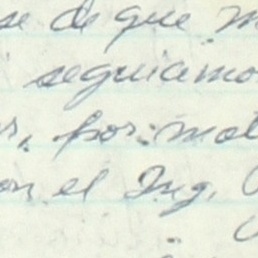 se de que m
seguiamo
r, por mot
on el Ing.